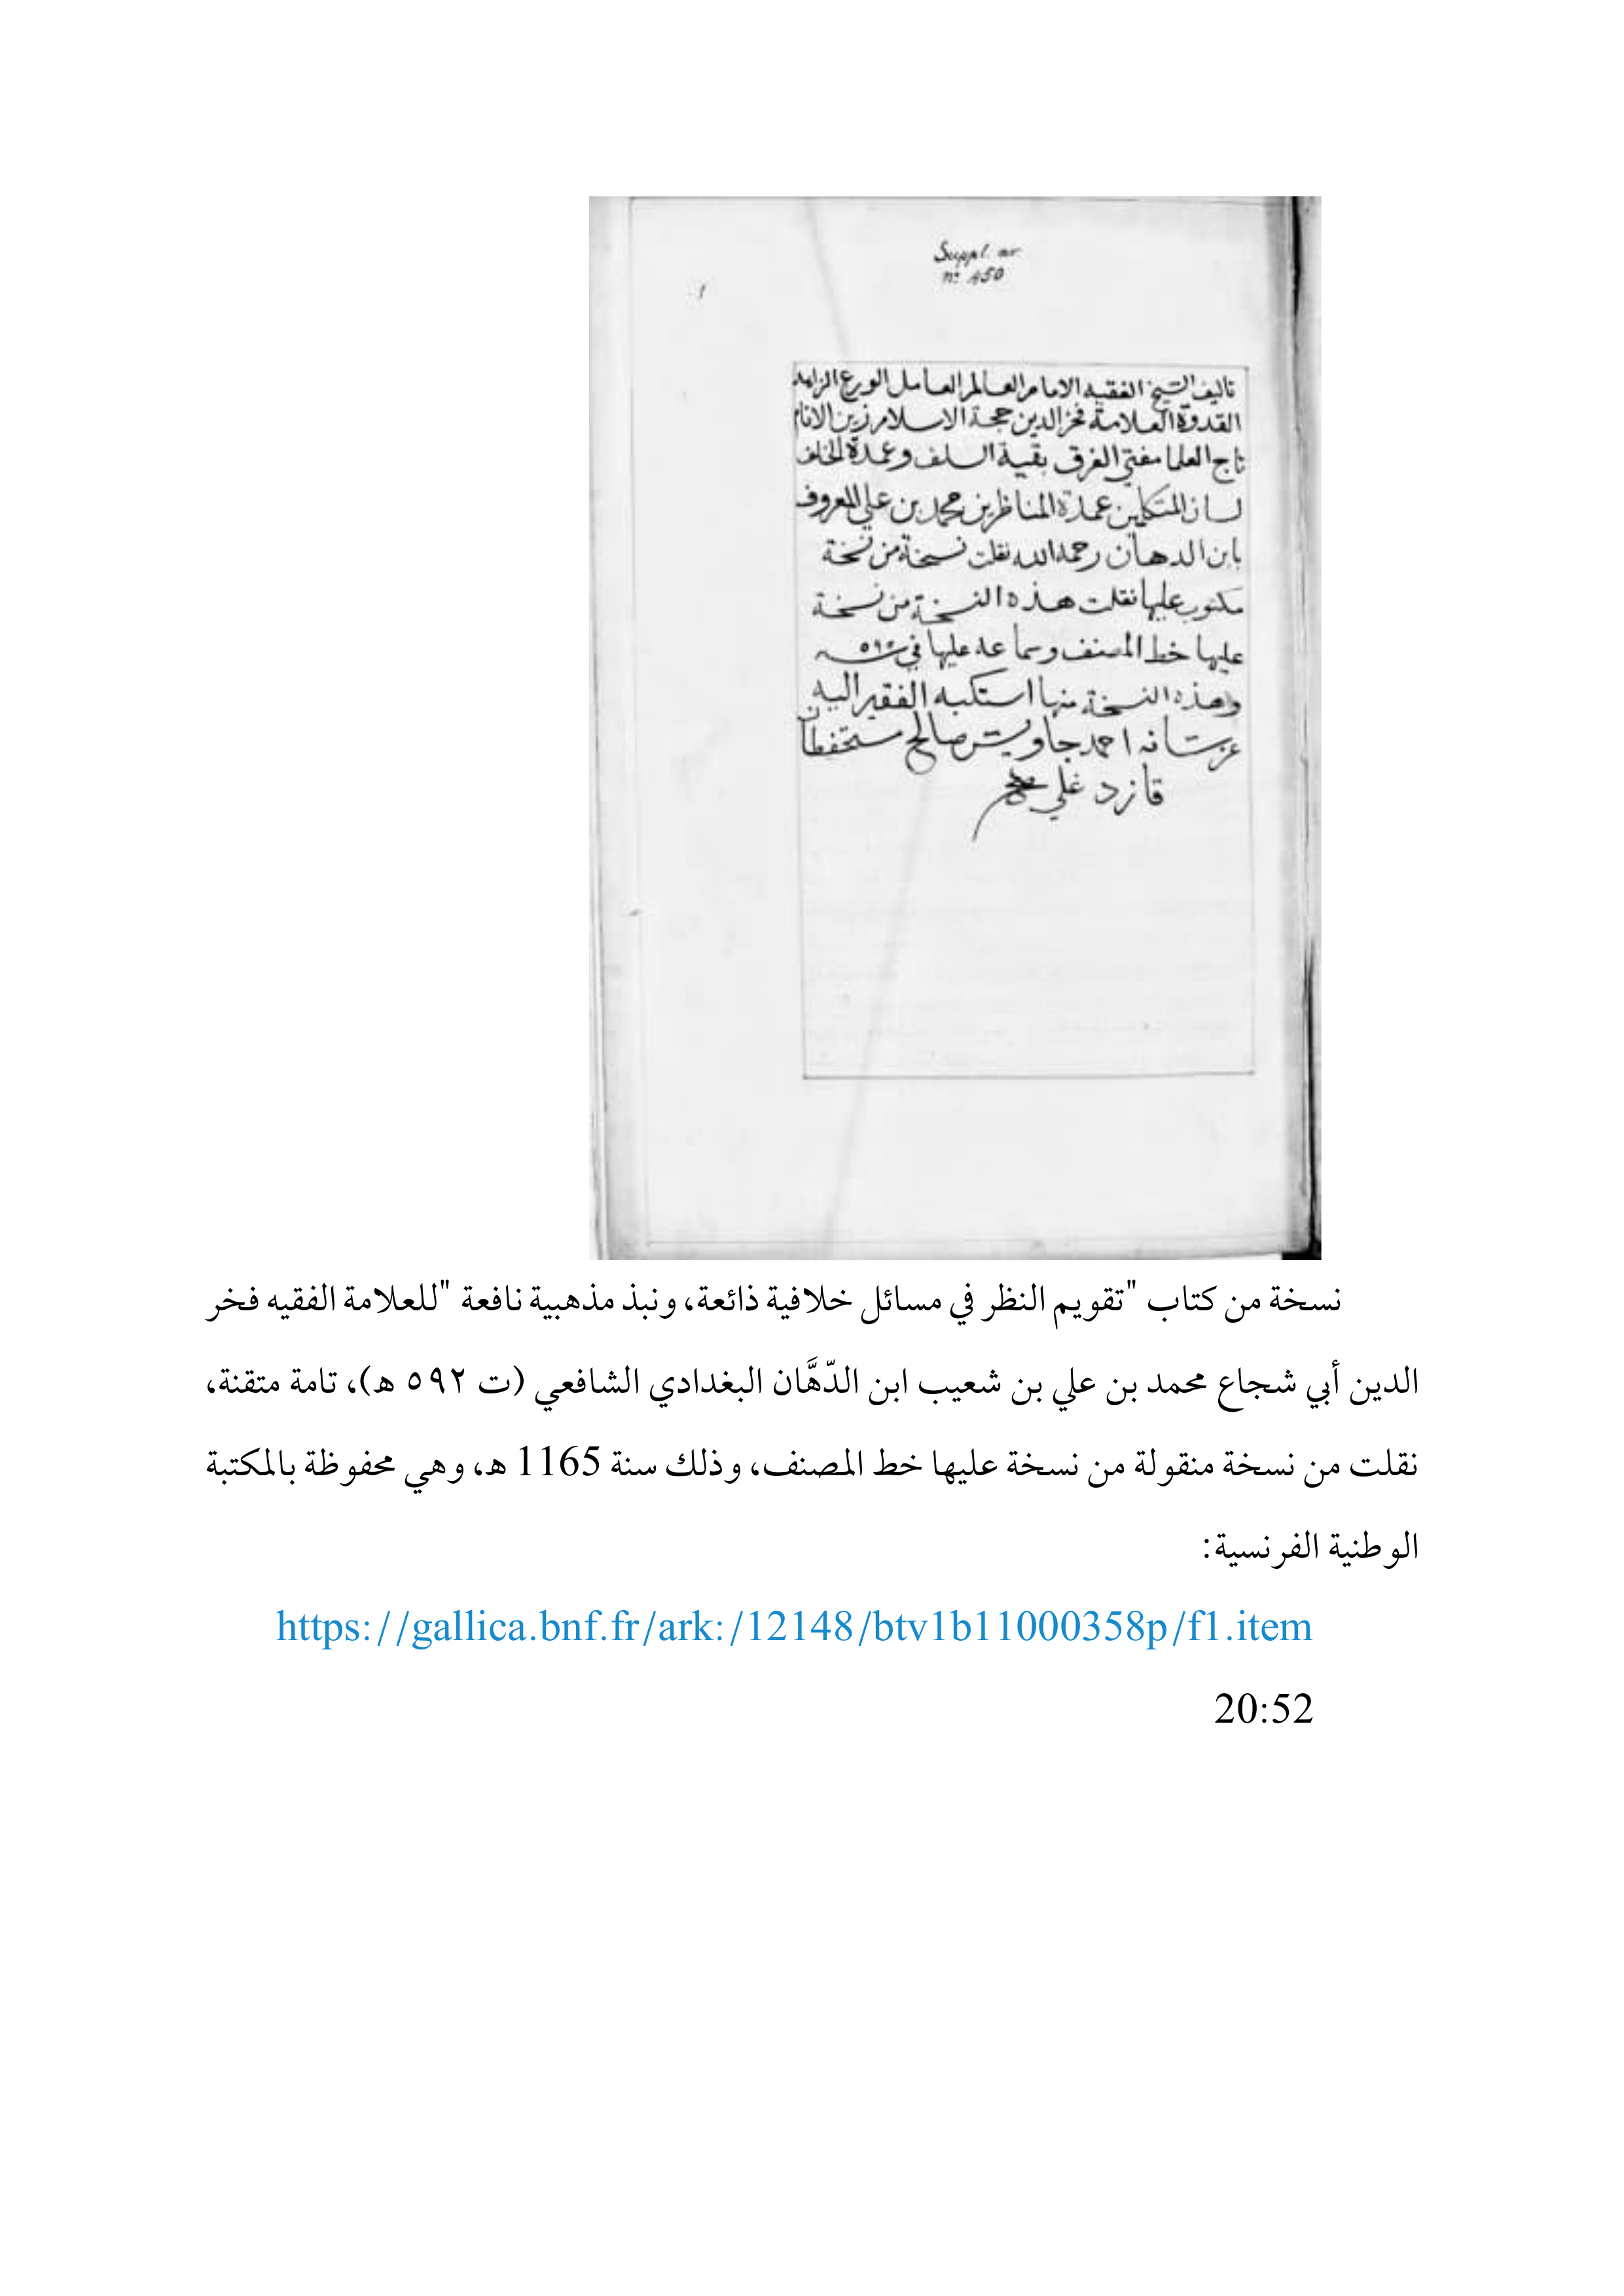 Suppl. ar.
nº 450
١
تاليف الشيخ الفقيه الامام العالم العامل الورع الزاهد
القدوة العلامة فخر الدين حجة الاسلام زين الانام
تاج العلما مفتي الفرق بقية السلف وعمدة الخلف
لسان المتكلمين عمدة المناظرين محمد بن علي المعروف
بابن الدهان رحمه الله نقلت نسخة من نسخة
مكتوب عليها نقلت هذه النسخة من نسخة
عليها خط المصنف وسماعه عليها في سنه
وهذه النسخة منها استكتبه الفقير اليه
عز شانه احمد جاويش صالح مستحفظان
قازد غلي
نسخة من كتاب "تقويم النظر في مسائل خلافية ذائعة، ونبذ مذهبية نافعة "للعلامة الفقيه فخر
الدين أبي شجاع محمد بن علي بن شعيب ابن الدّهَّان البغدادي الشافعي (ت ٥٩٢ هـ)، تامة متقنة،
نقلت من نسخة منقولة من نسخة عليها خط المصنف، وذلك سنة 1165 هـ، وهي محفوظة بالمكتبة
الوطنية الفرنسية:
https://gallica.bnf.fr/ark:/12148/btv1b11000358p/f1.item
20:52